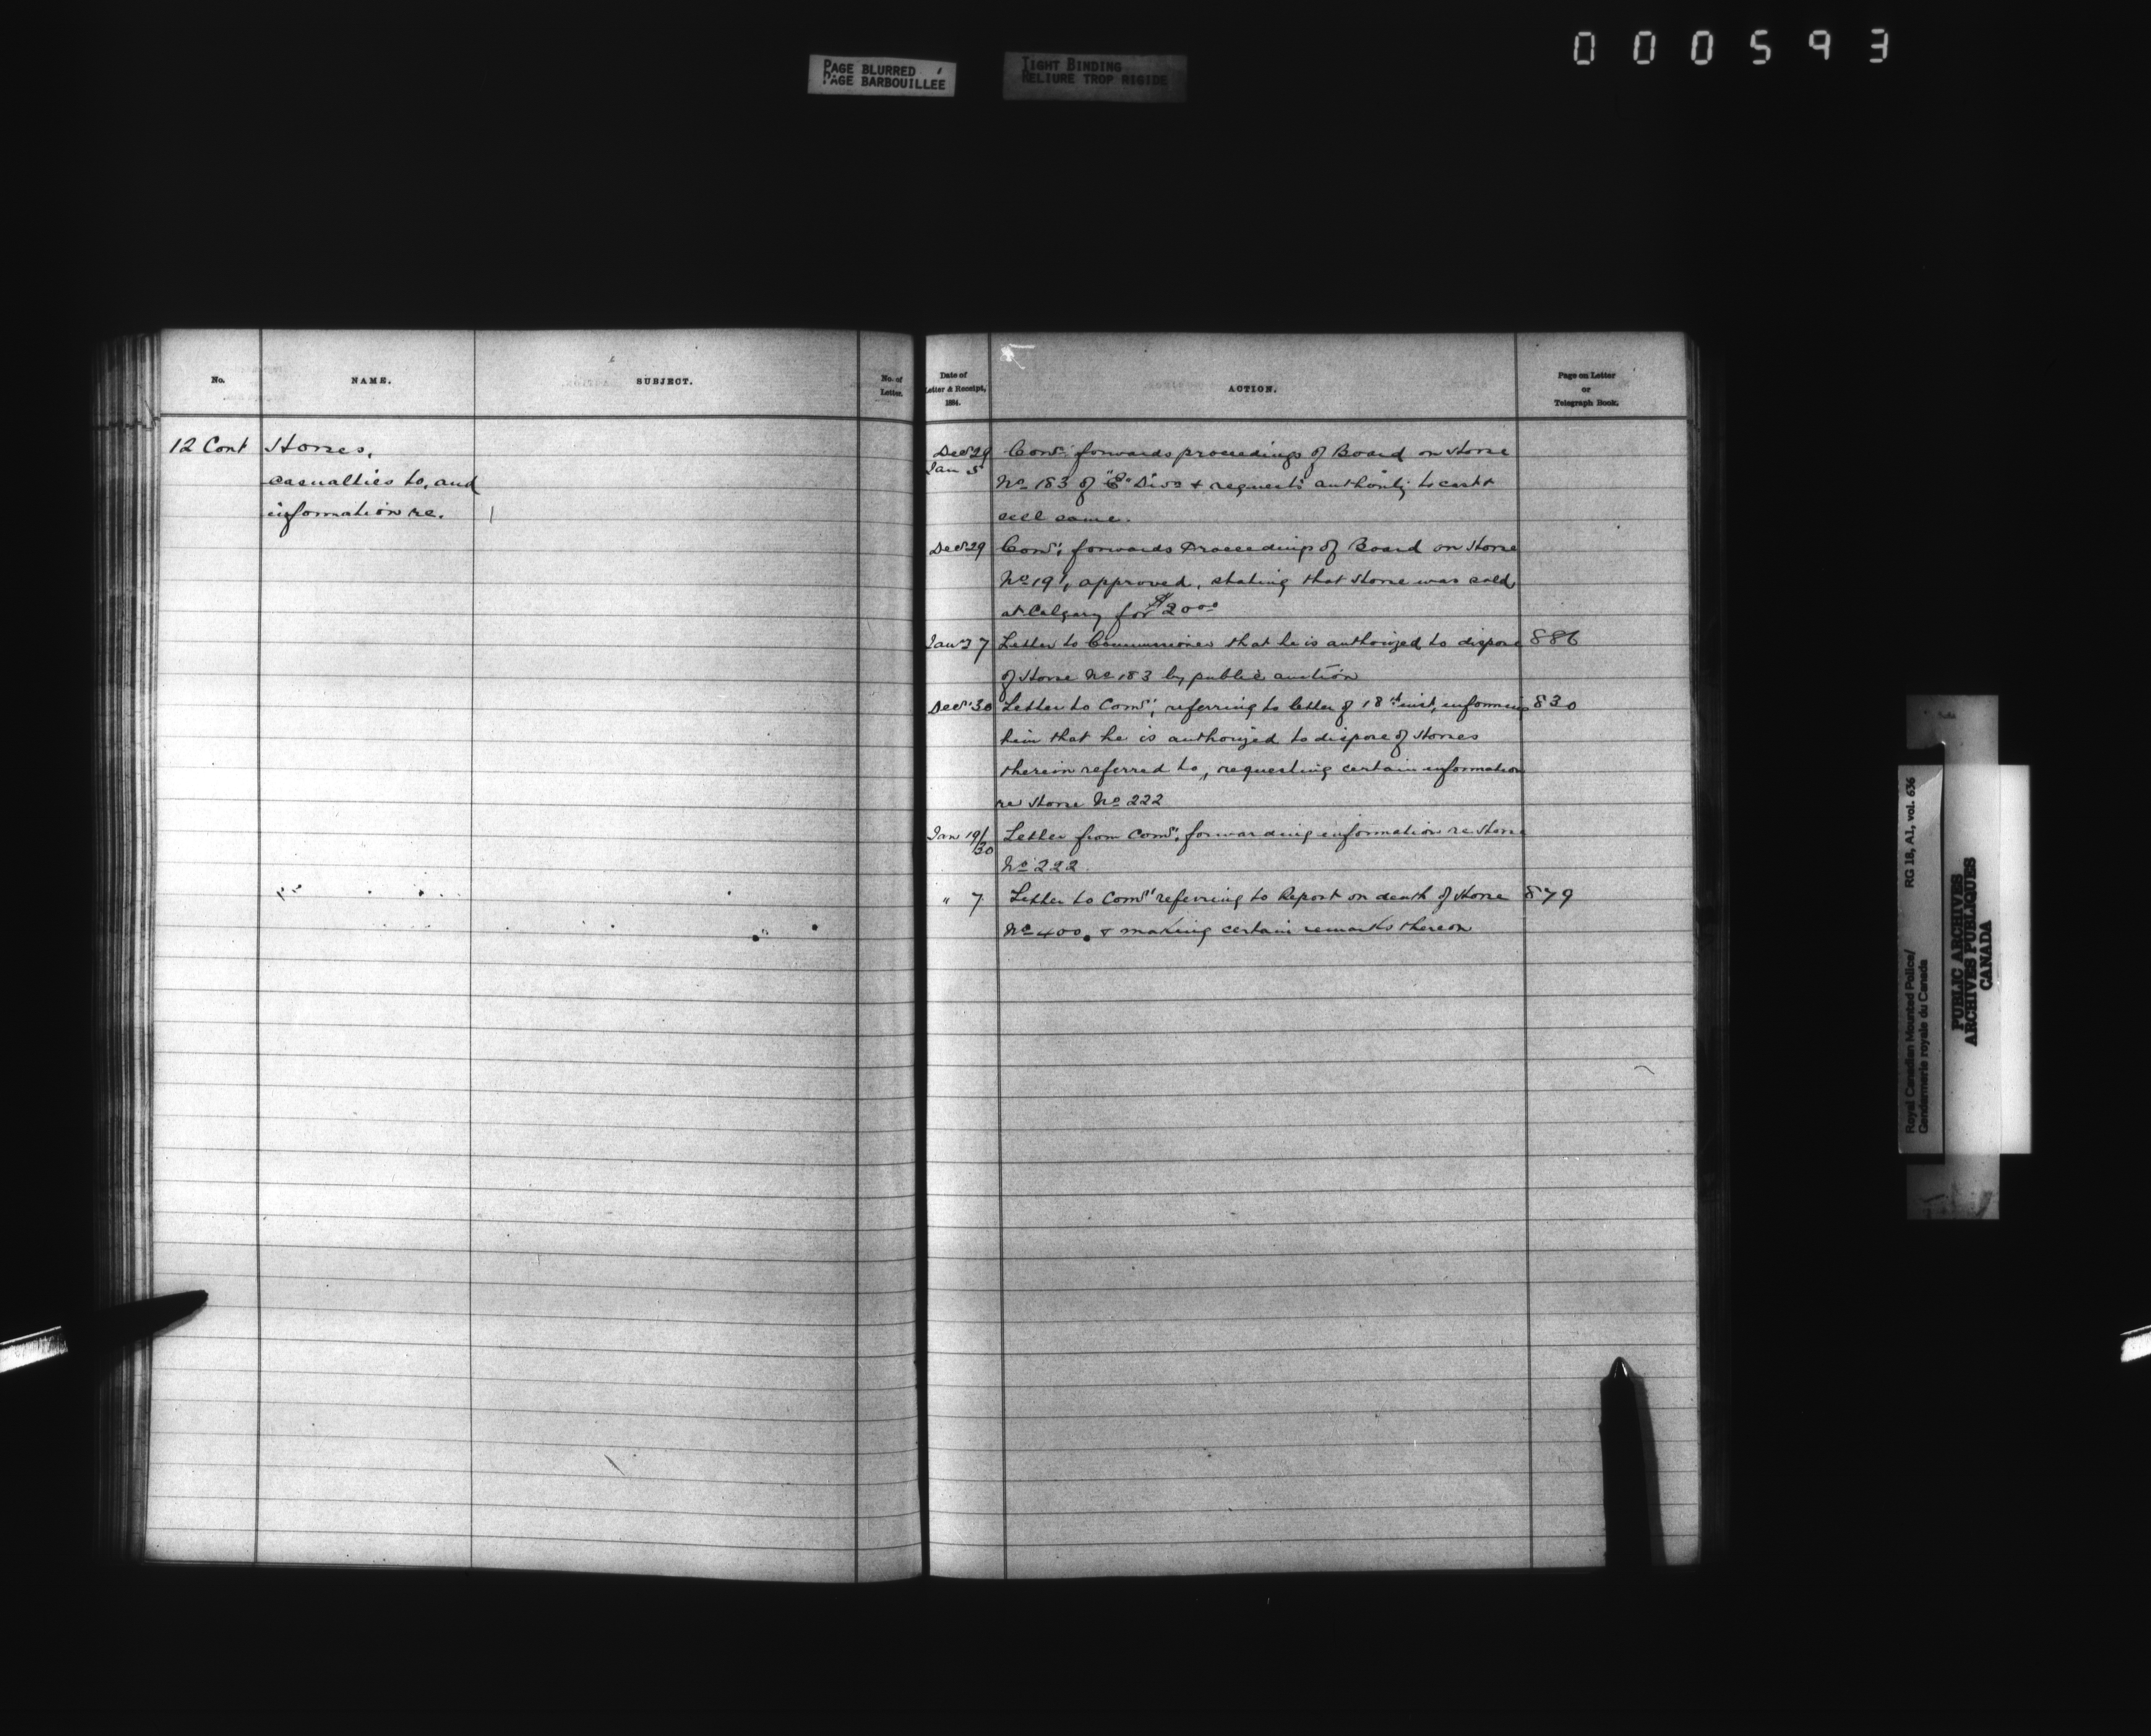 000593
PAGE BLURRED
PAGE BARBOUILLEE
TIGHT BINDING
RELIURE TROP RIGIDE
No.
NAME.
SUBJECT.
No. of
Letter.
Date of
Letter & Receipt,
1884.
ACTION.
Page on Letter
or
Telegraph Book.
12 Cont Horses,
casualties to, and
information re.
Decr 29 Comr forwards proceedings of Board on Horse
Jan 5 No 183 of "E" Divn & requests authority to cast &
sell same.
Decr 29 Comr; forwards Proceedings of Board on Horse
No 191, approved, stating that Horse was sold
at Calgary for $20.00
Jany 27 Letter to Commissioner that he is authorized to dispose 886
of Horse No 183 by public auction
Decr 30 Letter to Comr, referring to letter of 18th inst, informing 830
him that he is authorized to dispose of Horses
therein referred to, requesting certain information
re Horse No 222
Jan 19/30 Letter from Comr, forwarding information re Horse
No 222.
" 7 Letter to Comr referring to Report on death of Horse 879
No 400, & making certain remarks thereon
Royal Canadian Mounted Police/
Gendarmerie royale du Canada
RG 18, A1, vol. 636
PUBLIC ARCHIVES
ARCHIVES PUBLIQUES
CANADA